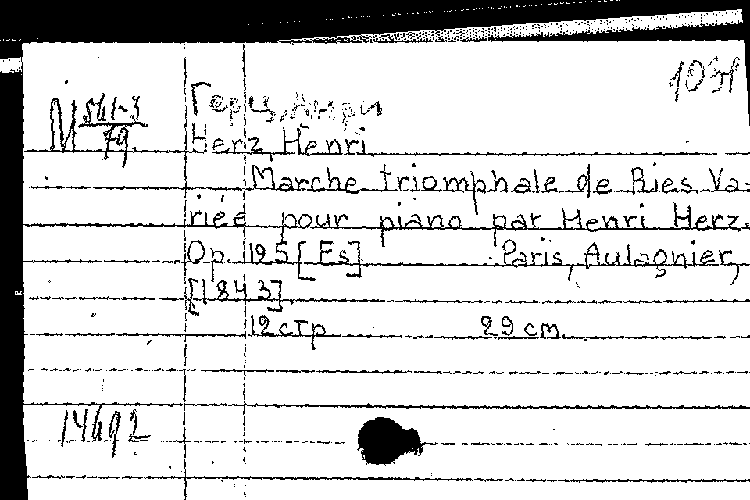 1031
М 561-3
79
Герц, Анри
Herz, Henri
Marche triomphale de Ries Va-
riée pour piano par Henri Herz.
Op. 125 [Es] Paris, Aulagnier,
[1843].
12 стр 29 cm.
14692